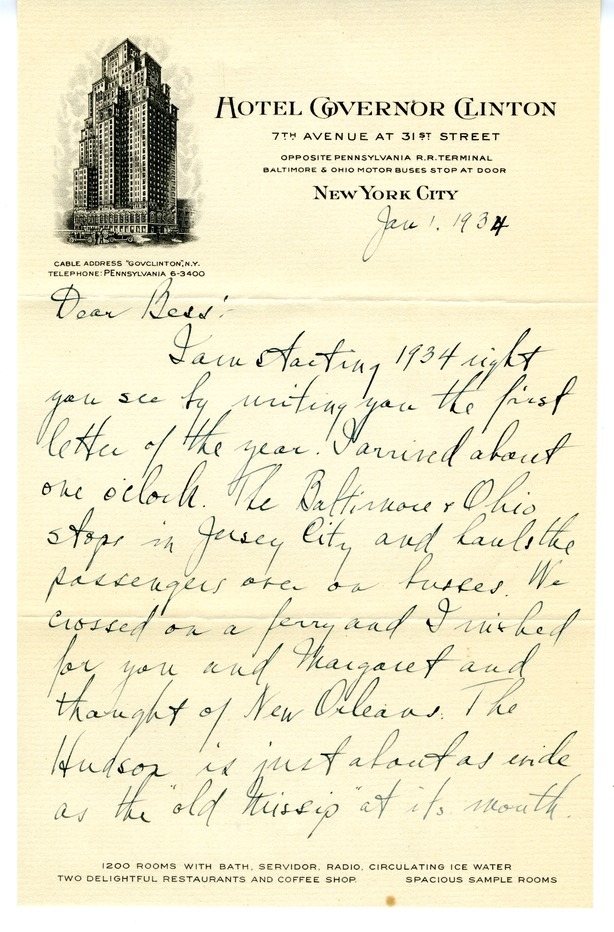 HOTEL GOVERNOR CLINTON
7TH AVENUE AT 31ST STREET
OPPOSITE PENNSYLVANIA R.R. TERMINAL
BALTIMORE & OHIO MOTOR BUSES STOP AT DOOR
NEW YORK CITY
Jan 1. 1934
CABLE ADDRESS "GOVCLINTON", N.Y.
TELEPHONE: PENNSYLVANIA 6-3400
Dear Bess:
I am starting 1934 right
you see by writing you the first
letter of the year. I arrived about
one o'clock. The Baltimore & Ohio
stops in Jersey City and hauls the
passengers over on busses. We
crossed on a ferry and I wished
for you and Margaret and
thought of New Orleans. The
Hudson is just about as wide
as the "old Missip" at its mouth.
1200 ROOMS WITH BATH, SERVIDOR, RADIO, CIRCULATING ICE WATER
TWO DELIGHTFUL RESTAURANTS AND COFFEE SHOP. SPACIOUS SAMPLE ROOMS